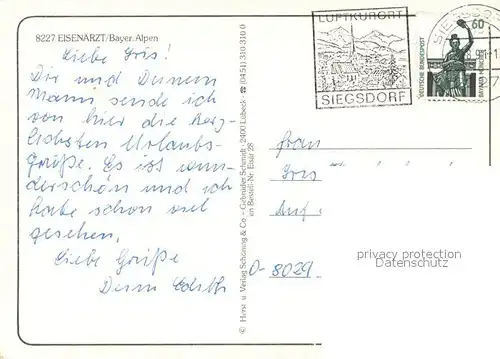 8227 EISENÄRZT/Bayer. Alpen
Liebe Iris!
Dir und Deinem
Mann sende ich
von hier die herz-
lichsten Urlaubs-
grüße. Es ist wun-
derschön und ich
habe schon viel
gesehen.
Liebe Grüße
Deine Edith
© Horst u. Verlag Schöning & Co - Gebrüder Schmidt - 2400 Lübeck - ☎ (0451) 310 310 0
Bestell-Nr. Eisär 28
LUFTKURORT
SIEGSDORF
SIEGSDORF
60
DEUTSCHE BUNDESPOST
BAVARIA MÜNCHEN
Frau
Iris
Auf
O-8029
privacy protection
Datenschutz